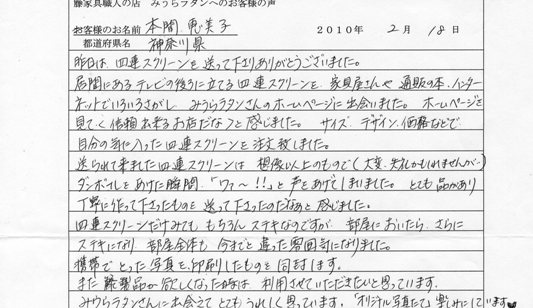 籐家具職人の店 みうらラタンへのお客様の声
お客様のお名前 本間 恵美子 2010年 2月 18日
都道府県名 神奈川県
昨日は、四連スクリーンを送って下さりありがとうございました。
居間にあるテレビの後ろに立てる四連スクリーンを、家具屋さんや通販の本、インター
ネットでいろいろさがし、みうらラタンさんのホームページに出会いました。ホームページを
見て、信頼出来るお店だなっと感じました。サイズ、デザイン、価格などで
自分の気に入った四連スクリーンを注文致しました。
送られて来ました四連スクリーンは想像以上のもので(大変、失礼かもしれませんが…)
ダンボールをあけた瞬間、「ワァ〜!!」と声をあげてしまいました。とても品があり
丁寧に作って下さったものを送って下さったのだなあと感じました。
四連スクリーンだけみても、もちろんステキなのですが、部屋においたら、さらに
ステキになり、部屋全体も今までと違った雰囲気になりました。
携帯でとった写真を印刷したものを同封します。
また籐製品が欲しくなった時は利用させていただきたいと思っています。
みウらラタンさんに出会えてとてもうれしく思っています。「オリジナル写真たて」楽しみにしています♥